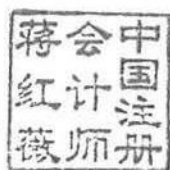 中国注册
会计师
蒋红薇